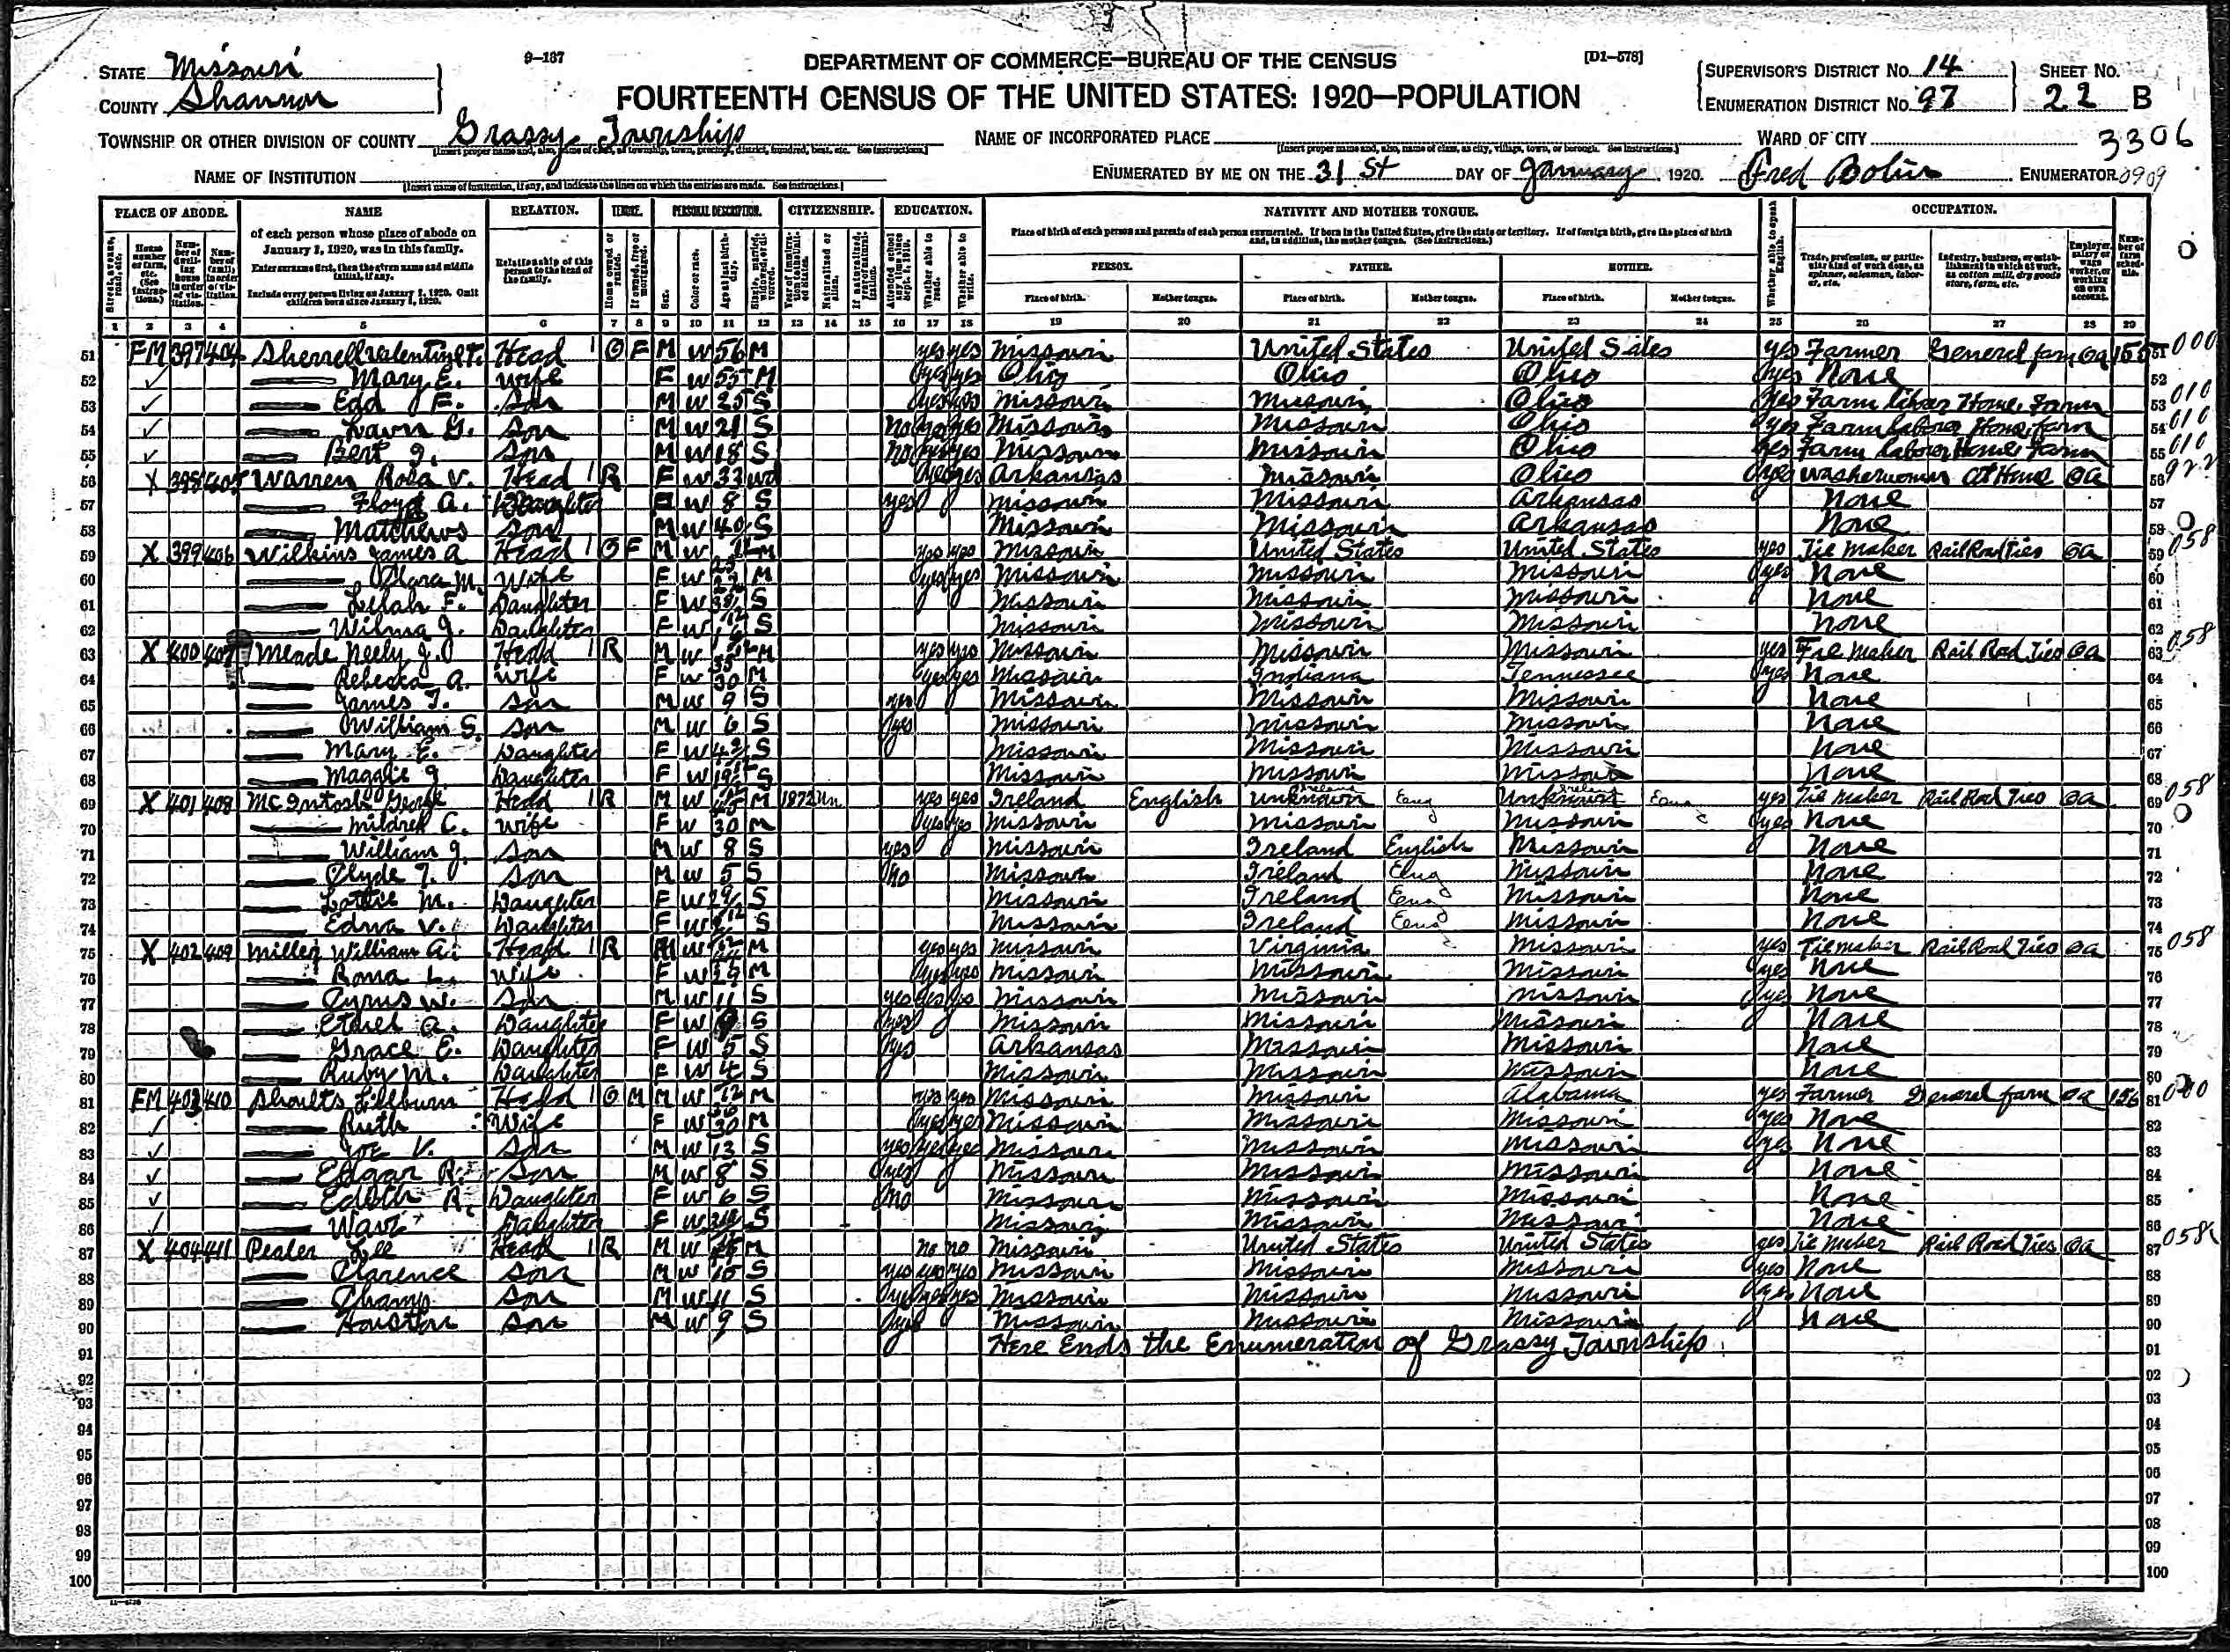 9-187
DEPARTMENT OF COMMERCE—BUREAU OF THE CENSUS
[D1-578]
STATE Missouri
COUNTY Shannon
FOURTEENTH CENSUS OF THE UNITED STATES: 1920—POPULATION
SUPERVISOR'S DISTRICT NO. 14
ENUMERATION DISTRICT NO. 97
SHEET NO. 22 B
TOWNSHIP OR OTHER DIVISION OF COUNTY Grassy Township
NAME OF INCORPORATED PLACE
WARD OF CITY
3306
NAME OF INSTITUTION
ENUMERATED BY ME ON THE 31 st DAY OF January, 1920. Fred ENUMERATOR 0909
PLACE OF ABODE. NAME RELATION. TENURE. PERSONAL DESCRIPTION. CITIZENSHIP. EDUCATION. NATIVITY AND MOTHER TONGUE. OCCUPATION.
of each person whose place of abode on January 1, 1920, was in this family.
Enter surname first, then the given name and middle initial, if any.
Include every person living on January 1, 1920. Omit children born since January 1, 1920.
Relationship of this person to the head of the family.
Place of birth of each person and parents of each person enumerated. If born in the United States, give the state or territory. If of foreign birth, give the place of birth and, in addition, the mother tongue. (See instructions.)
PERSON. FATHER. MOTHER.
Place of birth. Mother tongue. Place of birth. Mother tongue. Place of birth. Mother tongue.
1 2 3 4 5 6 7 8 9 10 11 12 13 14 15 16 17 18 19 20 21 22 23 24 25 26 27 28 29
51 FM 397 404 Sherrell Valentine Head 1 O F M W 56 M yes yes Missouri United States United States yes Farmer General farm oa 155 51 000
52 Mary E. wife F W 55 M yes yes Ohio Ohio Ohio yes None 52
53 Edd F. son M W 25 S yes yes Missouri Missouri Ohio yes Farm labor Home Farm 53 010
54 G. son M W 21 S no yes yes Missouri Missouri Ohio yes Farm labor Home farm 54 010
55 Bert J. son M W 18 S no yes yes Missouri Missouri Ohio yes Farm labor Home Farm 55 010
56 X 398 405 Warren Rosa V. Head 1 R F W 33 wd yes yes Arkansas Missouri Ohio yes washerwoman At Home oa 56 922
57 Floyd A. Daughter F W 8 S yes Missouri Missouri Arkansas None 57
58 Matthews son M W S Missouri Missouri Arkansas None 58
59 X 399 406 Wilkins James A Head 1 O F M W M yes yes Missouri United States United States yes Tie Maker Rail Road Ties oa 59 058
60 Clara M. Wife F W M yes yes Missouri Missouri Missouri yes None 60
61 Lelah F. Daughter F W S Missouri Missouri Missouri None 61
62 Wilma J. Daughter F W S Missouri Missouri Missouri None 62
63 X 400 407 Meade Neely J. Head 1 R M W 35 M yes yes Missouri Missouri Missouri yes Tie Maker Rail Road Ties oa 63 058
64 Rebecca A. wife F W 30 M yes yes Missouri Indiana Tennessee yes None 64
65 James T. son M W 9 S yes Missouri Missouri Missouri None 65
66 William S. son M W 6 S yes Missouri Missouri Missouri None 66
67 Mary E. Daughter F W S Missouri Missouri Missouri None 67
68 Maggie J Daughter F W S Missouri Missouri Missouri None 68
69 X 401 408 McIntosh George Head 1 R M W M 1872 Un yes yes Ireland English Unknown Ireland Eng Unknown Ireland Eng yes Tie Maker Rail Road Ties oa 69 058
70 Mildred C. wife F W 30 M yes yes Missouri Missouri Missouri yes None 70
71 William J. son M W 8 S yes Missouri Ireland English Missouri None 71
72 Clyde T. son M W 5 S no Missouri Ireland Eng Missouri None 72
73 Lottie M. Daughter F W S Missouri Ireland Eng Missouri None 73
74 Edna V. Daughter F W S Missouri Ireland Eng Missouri None 74
75 X 402 409 Miller William A. Head 1 R M W M yes yes Missouri Virginia Missouri yes Tie maker Rail Road Ties oa 75 058
76 Roma L. wife F W M yes yes Missouri Missouri Missouri yes None 76
77 Cyrus W. son M W 11 S yes yes yes Missouri Missouri Missouri yes None 77
78 Ethel A. Daughter F W 9 S yes Missouri Missouri Missouri None 78
79 Grace E. Daughter F W 5 S yes Arkansas Missouri Missouri None 79
80 Ruby M. Daughter F W 4 S Missouri Missouri Missouri None 80
81 FM 403 410 Shoults Lilburn Head 1 O M M W M yes yes Missouri Missouri Alabama yes Farmer General farm oa 156 81 000
82 Ruth Wife F W 30 M yes yes Missouri Missouri Missouri yes None 82
83 Joe V. son M W 13 S yes yes yes Missouri Missouri Missouri yes None 83
84 Edgar R. son M W 8 S yes Missouri Missouri Missouri None 84
85 Edith R. Daughter F W 6 S no Missouri Missouri Missouri None 85
86 Daughter F W S Missouri Missouri Missouri None 86
87 X 404 411 Pealer Lee Head 1 R M W M no no Missouri United States United States yes Tie Maker Rail Road Ties oa 87 058
88 Clarence son M W 15 S yes yes yes Missouri Missouri Missouri yes None 88
89 Champ son M W 11 S yes yes yes Missouri Missouri Missouri yes None 89
90 Houston son M W 9 S yes Missouri Missouri Missouri None 90
91 Here Ends the Enumeration of Grassy Township 91
92 92
93 93
94 94
95 95
96 96
97 97
98 98
99 99
100 100